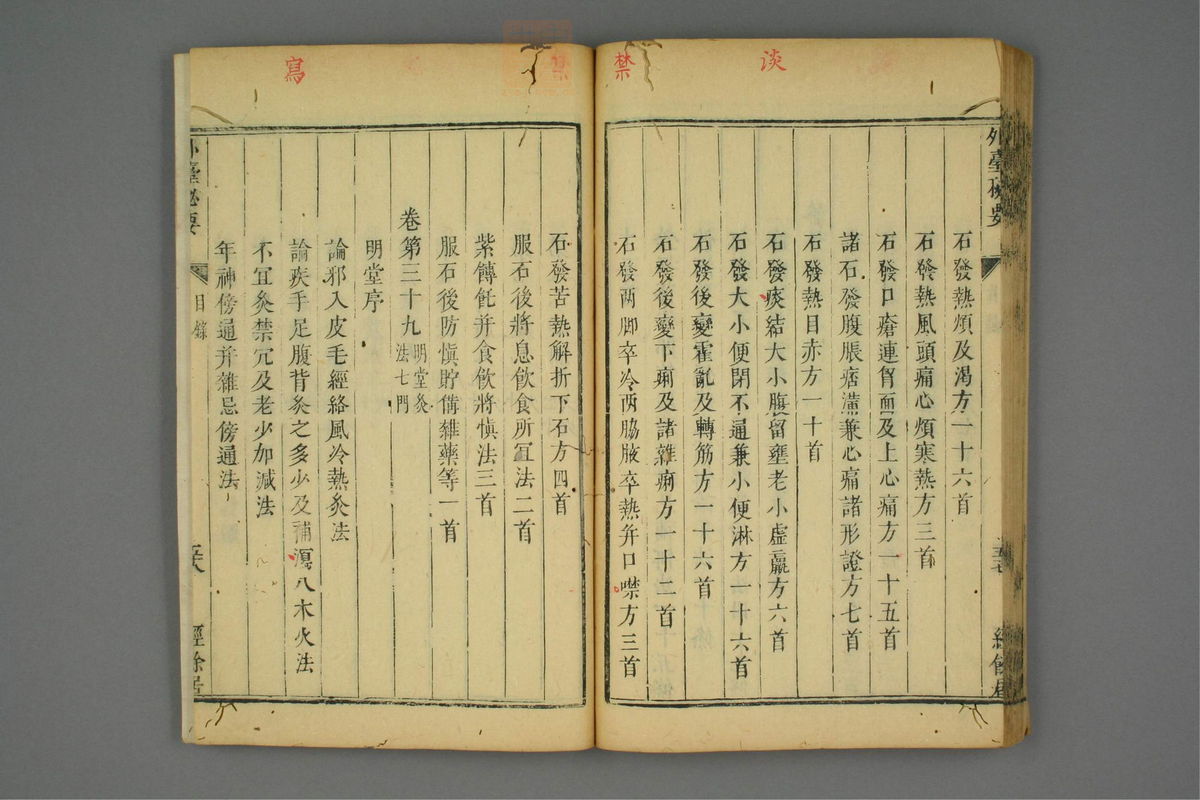 禁
談
外臺秘要
石發熱煩及渴方一十六首
石發熱風頭痛心煩寒熱方三首
石發口瘡連胷面及上心痛方一十五首
諸石發腹脹痞滿兼心痛諸形證方七首
石發熱目赤方一十首
石發痰結大小腹留壅老小虛羸方六首
石發大小便閉不通兼小便淋方一十六首
石發後變霍亂及轉筋方一十六首
石發後變下痢及諸雜痢方一十二首
石發两脚卒冷两脇腋卒熱并口噤方三首
經餘居
寫
禁
石發苦熱解折下石方四首
服石後將息飲食所冝法二首
紫餺飥并食飲將慎法三首
服石後防慎貯偹雜藥等一首
卷第三十九 明堂灸法七門
明堂序
論邪入皮毛經絡風冷熱灸法
論疾手足腹背灸之多少及補瀉八木火法
不冝灸禁穴及老少加減法
年神傍通并雜忌傍通法
外臺秘要
目錄
經餘居